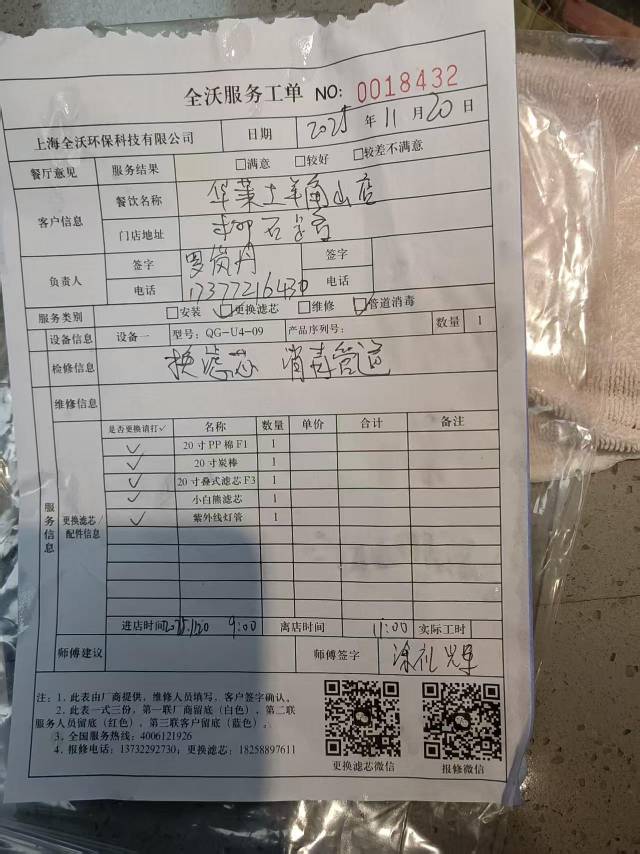 全沃服务工单 NO: 0018432
上海全沃环保科技有限公司 日期 2025 年 11 月 20 日
餐厅意见 服务结果 □满意 □较好 □较差不满意
客户信息 餐饮名称 华莱士羊角山店
门店地址 柳石路
负责人 签字 罗岚丹 签字
电话 17377216430 电话
服务类别 □安装 ☑更换滤芯 □维修 ☑管道消毒
设备信息 设备一 型号: QG-U4-09 产品序列号: 数量 1
检修信息 换滤芯 消毒管道
维修信息
服务信息
更换滤芯/配件信息
是否更换请打✓ 名称 数量 单价 合计 备注
✓ 20寸PP棉F1 1
✓ 20寸炭棒 1
✓ 20寸叠式滤芯F3 1
✓ 小白熊滤芯 1
✓ 紫外线灯管 1
进店时间 2025.11.20 9:00 离店时间 11:00 实际工时
师傅建议 师傅签字
注: 1. 此表由厂商提供, 维修人员填写, 客户签字确认。
2. 此表一式三份, 第一联厂商留底 (白色), 第二联
服务人员留底 (红色), 第三联客户留底 (蓝色)。
3. 全国服务热线: 4006121926
4. 报修电话: 13732292730; 更换滤芯: 18258897611
更换滤芯微信 报修微信